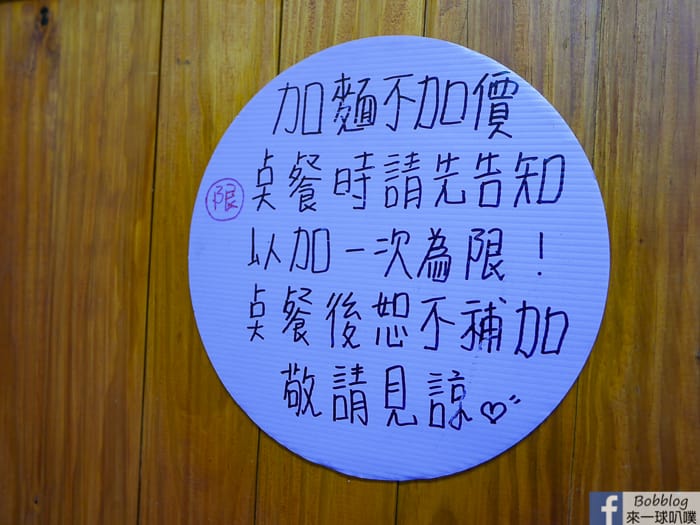 加麵不加價
限 点餐時請先告知
以加一次為限！
点餐後恕不補加
敬請見諒
Bobblog
來一球叭噗